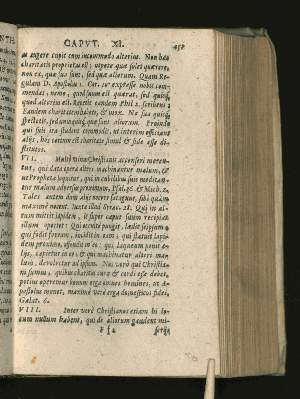 CAPVT. XI.
au augere cupit cum incommodo alterius. Non hoc
charitatis proprium est; utpote quæ solet quærere,
non ea, quæ sua sunt, sed quæ aliorum. Quam Re-
gulam D. Apostolus 1. Cor. 10 expresse nobis com-
mendat; nemo, quod suum est quærat, sed quisq;
quod alterius est. Repetit eandem Phil. 2. scribens:
Eandem charitatem habete, & mox. Ne sua quisq;
spectet, sed unusquisq; quæ sunt aliorum. Proinde
qui suis ita student commodis, ut interim officiant
aliis, hos certum est charitate simul & fide esse de-
stitutos.
VII. Multi minus Christianis accenseri meren-
tur, qui data opera aliis machinantur malum, &
ut Propheta loquitur, qui in cubilibus suis meditan-
tur malum adversus proximum, Psal. 36 & Mich. 2.
Tales autem dum aliis nocere satagunt, sibi quam
maxime nocent. Iuxta illud Syrac. 28. Qui in al-
tum mittit lapidem, is super caput suum recipiat
illum oportet: Qui occulte pungit, lædit seipsum:
qui fodit foveam, incidit in eam; qui statuit lapi-
dem proximo, offendit in eo: qui laqueum ponit a-
lii, capietur in eo: & qui machinatur alteri ma-
lum, devolvetur ad ipsum. Nos vero qui Christia-
ni sumus, quibus charitas curæ & cordi esse debet,
potius operemur bonum erga omnes homines, ut A-
postolus monet, maxime vero erga domesticos fidei,
Galat. 6.
VIII. Inter vere Christianos etiam hi lo-
cum nullum habent, qui de aliorum gaudent mi-
Ff 2 serijs